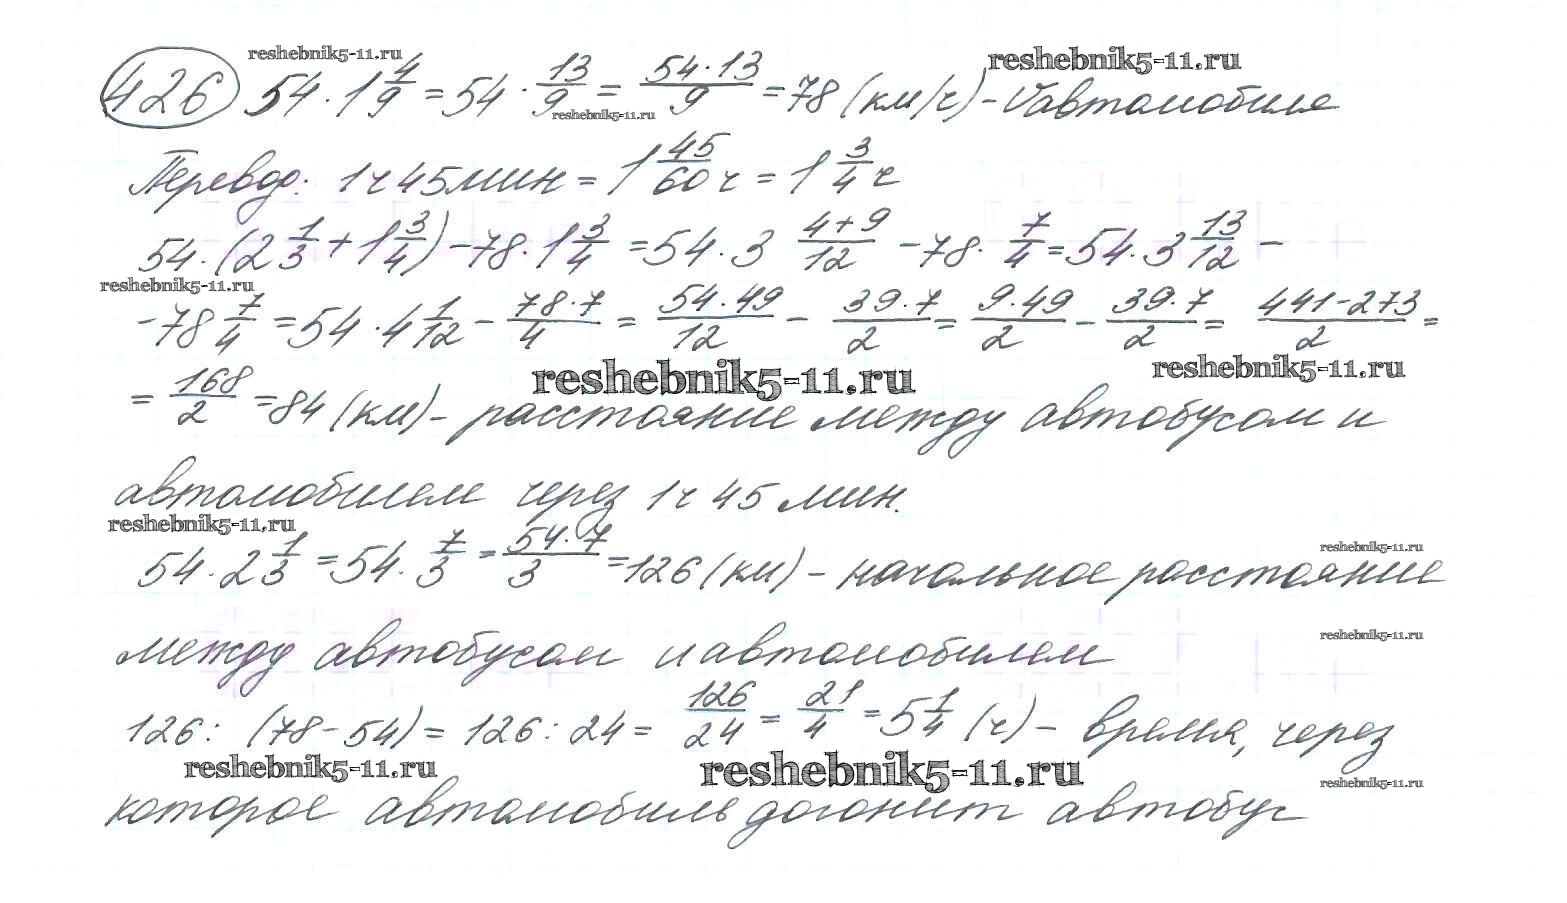 reshebnik5-11.ru
reshebnik5-11.ru
426 54 · 1 4/9 = 54 · 13/9 = (54 · 13)/9 = 78 (км/ч) - V автомобиля
reshebnik5-11.ru
Перевод: 1 ч 45 мин = 1 45/60 ч = 1 3/4 ч
54 · (2 1/3 + 1 3/4) - 78 · 1 3/4 = 54 · 3 (4+9)/12 - 78 · 7/4 = 54 · 3 13/12 -
reshebnik5-11.ru
- 78 7/4 = 54 · 4 1/12 - (78 · 7)/4 = (54 · 49)/12 - (39 · 7)/2 = (9 · 49)/2 - (39 · 7)/2 = (441 - 273)/2 =
reshebnik5-11.ru
reshebnik5-11.ru
= 168/2 = 84 (км) - расстояние между автобусом и
автомобилем через 1 ч 45 мин.
reshebnik5-11.ru
reshebnik5-11.ru
54 · 2 1/3 = 54 · 7/3 = (54 · 7)/3 = 126 (км) - начальное расстояние
reshebnik5-11.ru
между автобусом и автомобилем
126 : (78 - 54) = 126 : 24 = 126/24 = 21/4 = 5 1/4 (ч) - время, через
reshebnik5-11.ru
reshebnik5-11.ru
reshebnik5-11.ru
которое автомобиль догонит автобус